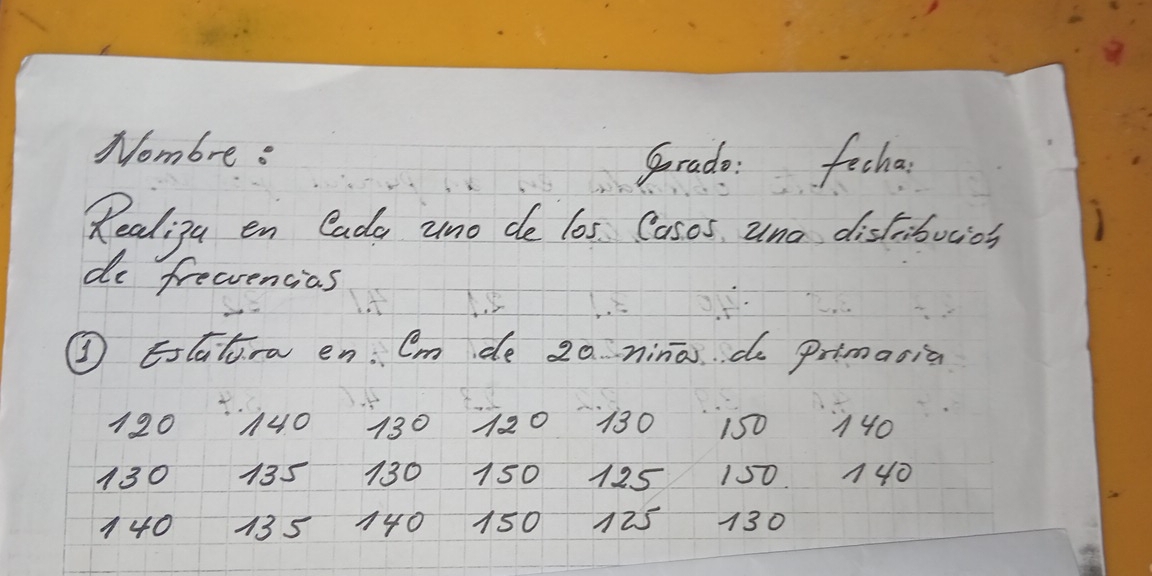 Nombre: Grado: fecha:
Realiza en Cada uno de los Casos una distribucion
de frecuencias
① Estatura en Cm de 20 niños de primaria
120 140 130 120 130 150 140
130 135 130 150 125 150 140
140 135 140 150 125 130